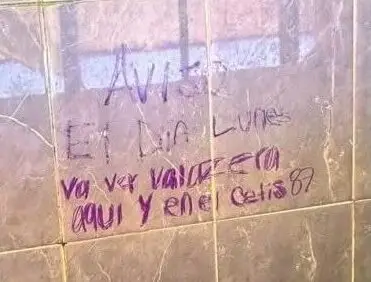 AVISO
El Dia Lunes
va ver valacera
aqui y en el Cetis 87